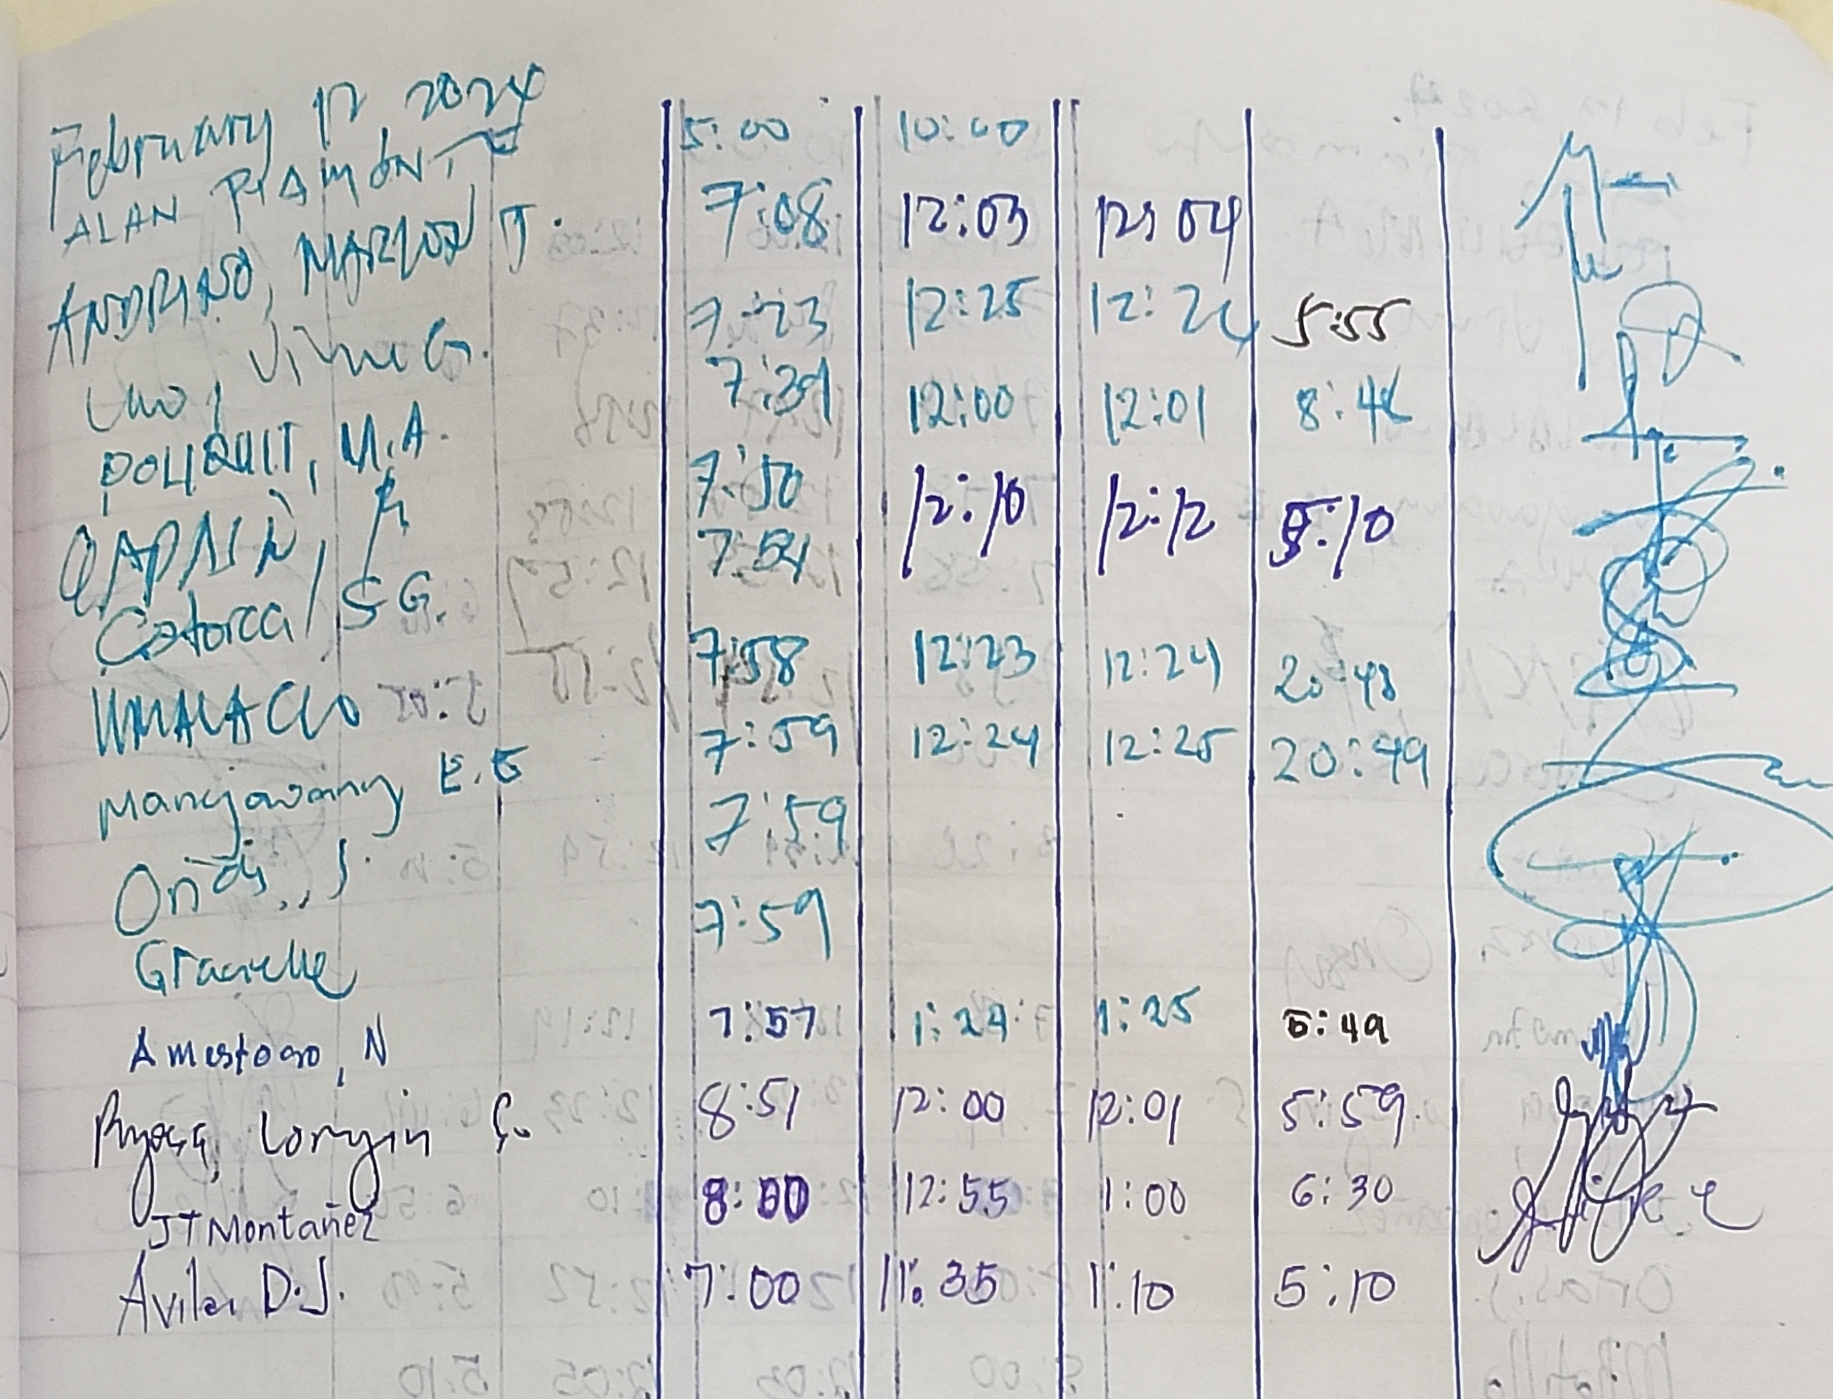 February 12, 2024
ALAN PIAMONTE 5:00 10:00
ANDRINO, MARLON J. 7:08 12:03 12:04
Uno, Vinne G. 7:23 12:25 12:26 5:55
POLIQUIT, M.A. 7:39 12:00 12:01 8:46
7:50 12:10 12:12 5:10
Catorca, S.G. 7:54
UMALACLO 7:58 12:23 12:24 20:48
Mangjavang E.E 7:59 12:24 12:25 20:49
Onas, J. 7:59
Gracielle 7:59
Amestoso, N 7:57 1:24 1:25 5:49
Lorgin 8:51 12:00 12:01 5:59
JT Montañez 8:50 12:55 1:00 6:30
Avila, D.J. 7:00 11:35 11:10 5:10